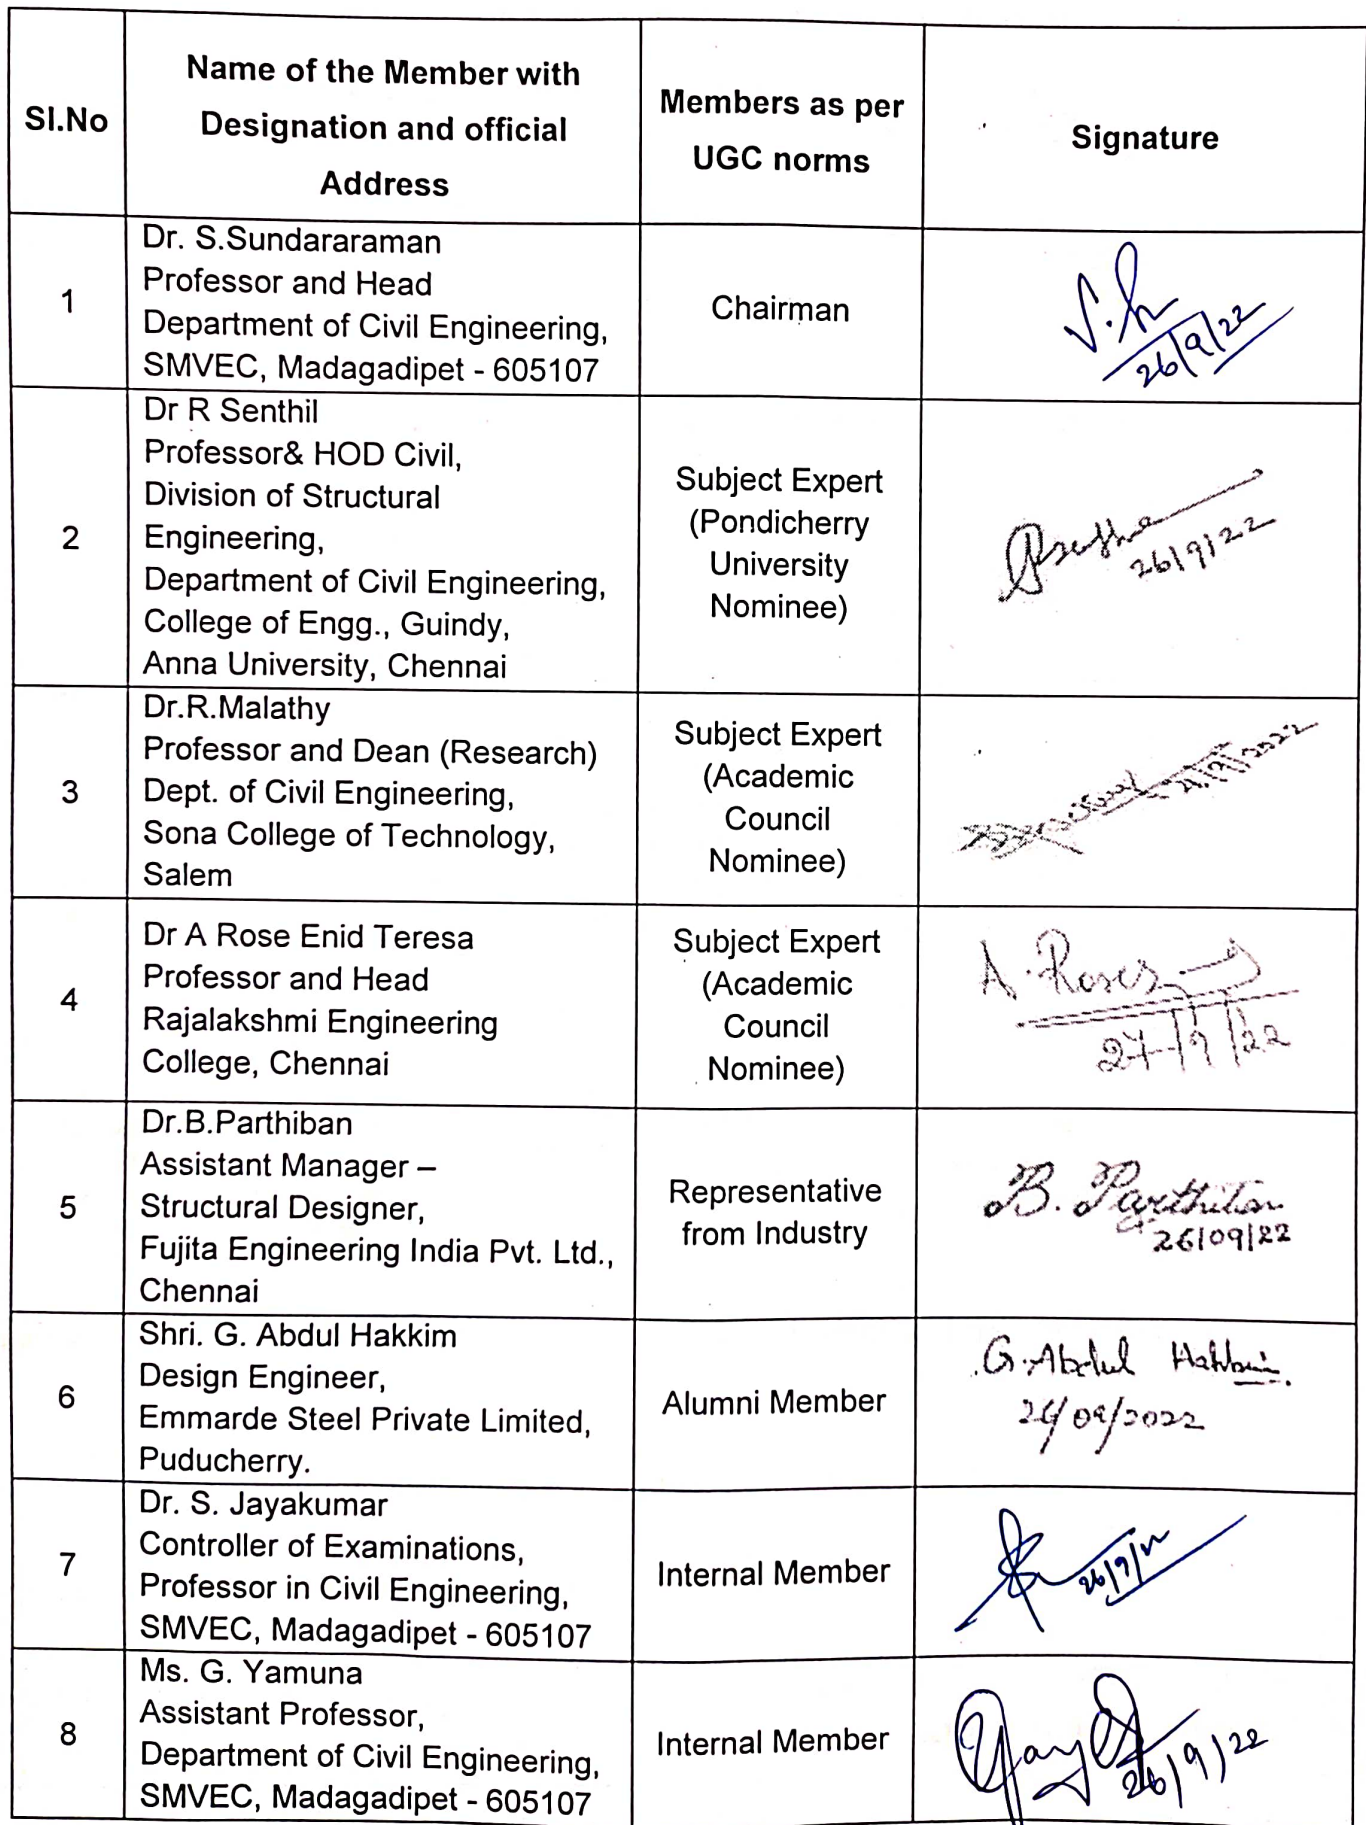 SI.No
Name of the Member with
Designation and official
Address
Members as per
UGC norms
Signature
1
Dr. S.Sundararaman
Professor and Head
Department of Civil Engineering,
SMVEC, Madagadipet - 605107
Chairman
26/9/22
2
Dr R Senthil
Professor& HOD Civil,
Division of Structural
Engineering,
Department of Civil Engineering,
College of Engg., Guindy,
Anna University, Chennai
Subject Expert
(Pondicherry
University
Nominee)
26/9/22
3
Dr.R.Malathy
Professor and Dean (Research)
Dept. of Civil Engineering,
Sona College of Technology,
Salem
Subject Expert
(Academic
Council
Nominee)
4
Dr A Rose Enid Teresa
Professor and Head
Rajalakshmi Engineering
College, Chennai
Subject Expert
(Academic
Council
Nominee)
27/9/22
5
Dr.B.Parthiban
Assistant Manager –
Structural Designer,
Fujita Engineering India Pvt. Ltd.,
Chennai
Representative
from Industry
B. Parthiban
26/09/22
6
Shri. G. Abdul Hakkim
Design Engineer,
Emmarde Steel Private Limited,
Puducherry.
Alumni Member
G. Abdul Hakkim
7
Dr. S. Jayakumar
Controller of Examinations,
Professor in Civil Engineering,
SMVEC, Madagadipet - 605107
Internal Member
8
Ms. G. Yamuna
Assistant Professor,
Department of Civil Engineering,
SMVEC, Madagadipet - 605107
Internal Member
26/9/22